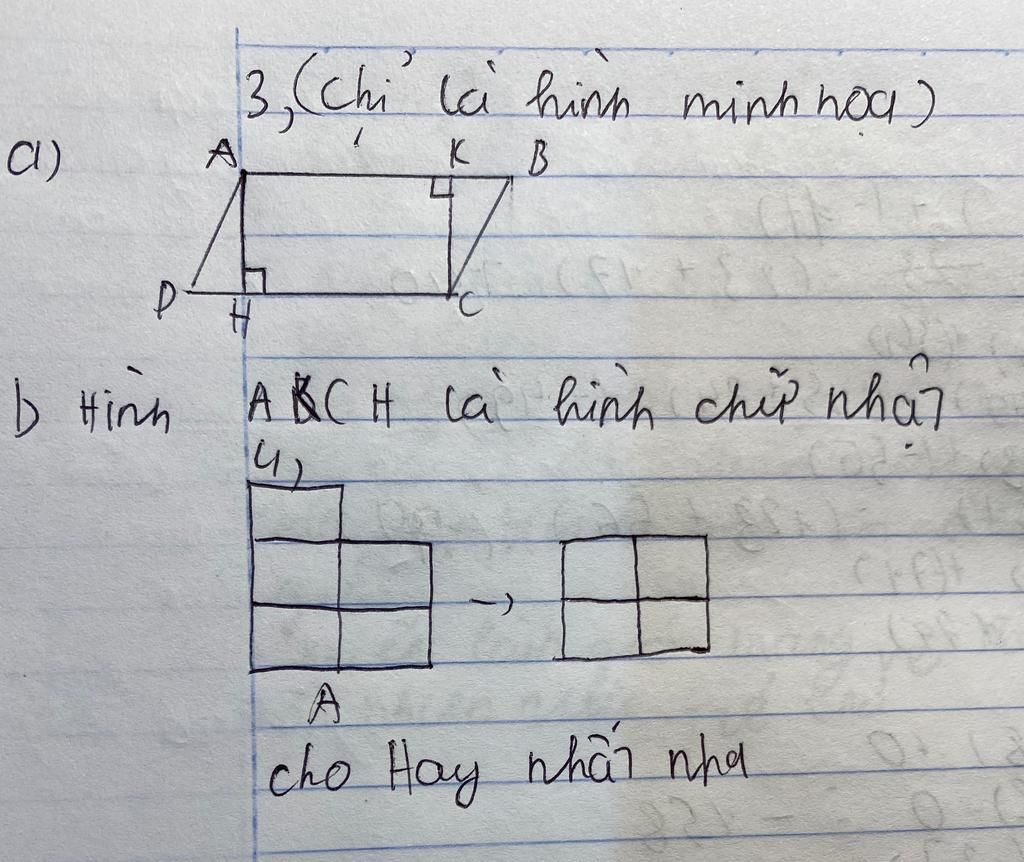 3, (Chỉ là hình minh họa)
a)
A K B
D H C
b Hình AKCH là hình chữ nhật
4,
A
cho Hay nhất nha